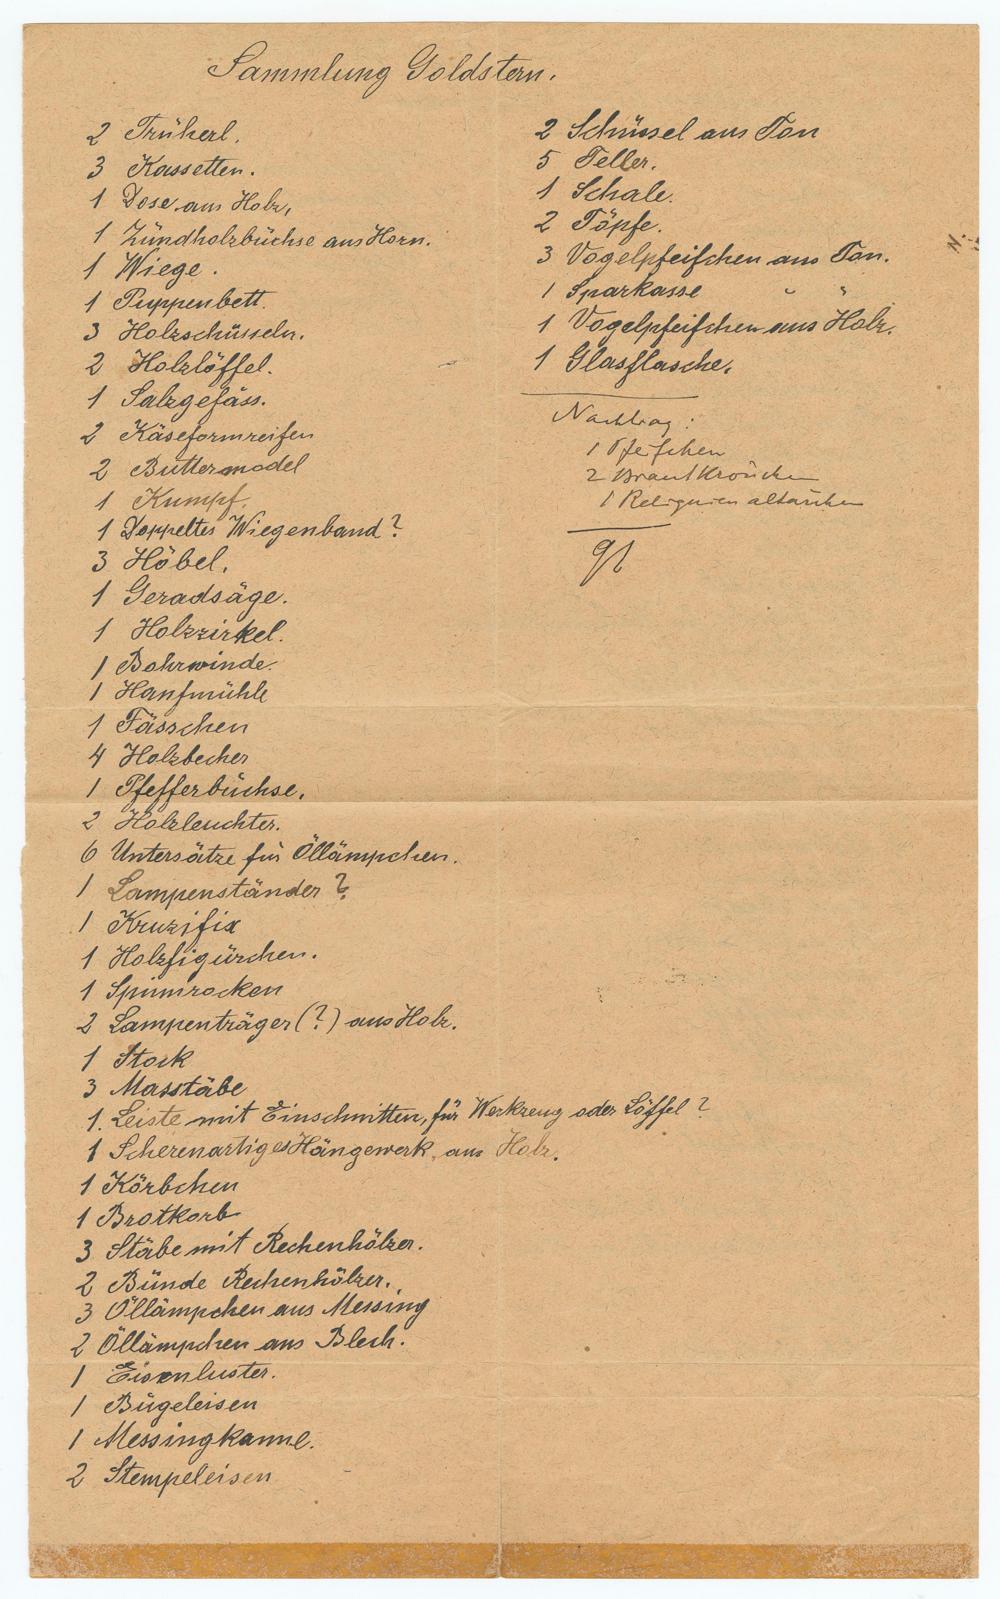 Sammlung Goldstern.
2 Trüherl.
3 Kassetten.
1 Dose aus Holz,
1 Zündholzbüchse aus Horn.
1 Wiege.
1 Puppenbett.
3 Holzschüsseln.
2 Holzlöffel.
1 Salzgefäss.
2 Käseformreifen
2 Buttermodel
1 Kumpf.
1 Doppeltes Wiegenband?
3 Hobel.
1 Geradsäge.
1 Holzzirkel.
1 Bohrwinde.
1 Hanfmühle
1 Fässchen
4 Holzbecher
1 Pfefferbüchse.
2 Holzleuchter.
6 Untersätze für Öllämpchen.
1 Lampenständer?
1 Kruzifix
1 Holzfigürchen.
1 Spinnrocken
2 Lampenträger (?) aus Holz.
1 Stock
3 Masstäbe
1. Leiste mit Einschnitten, für Werkzeug oder Löffel?
1 Scherenartiges Hängewerk, aus Holz.
1 Körbchen
1 Brotkorb
3 Stäbe mit Rechenhölzer.
2 Bünde Rechenhölzer.
3 Öllämpchen aus Messing
2 Öllämpchen aus Blech.
1 Eisenluster.
1 Bügeleisen
1 Messingkanne.
2 Stempeleisen
2 Schüssel aus Ton
5 Teller.
1 Schale.
2 Töpfe.
3 Vogelpfeifchen aus Ton.
1 Sparkasse " "
1 Vogelpfeifchen aus Holz.
1 Glasflasche.
Nachtrag:
1 Pfeifchen
2 Brautkrönchen
1 Reliquienaltärchen
91